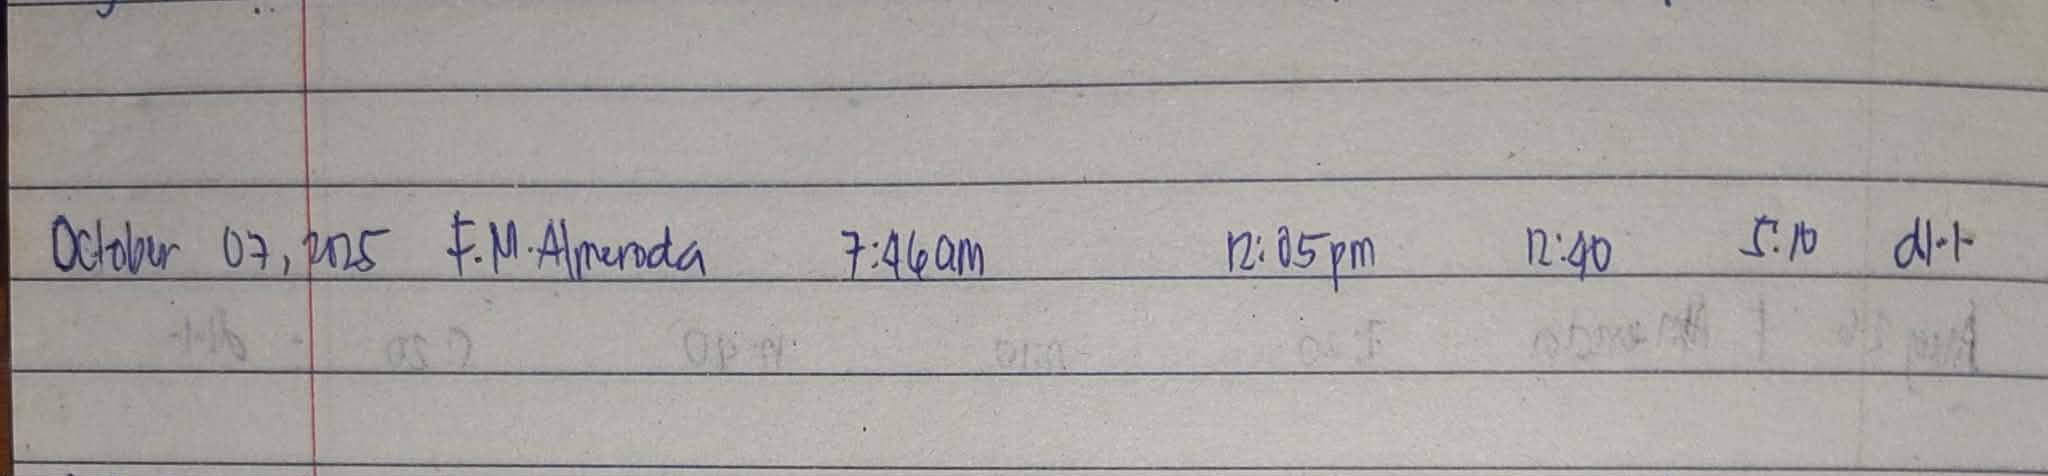 October 07, 2025 F.M. Almeroda 7:46am 12:05pm 12:40 5:10